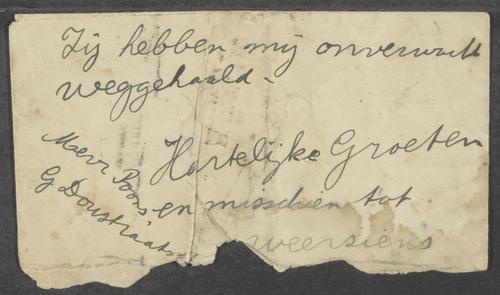 Zij hebben mij onverwacht
weggehaald.
Hartelijke Groeten
en misschien tot
weersiens
Mevr Poons
G Doustraat